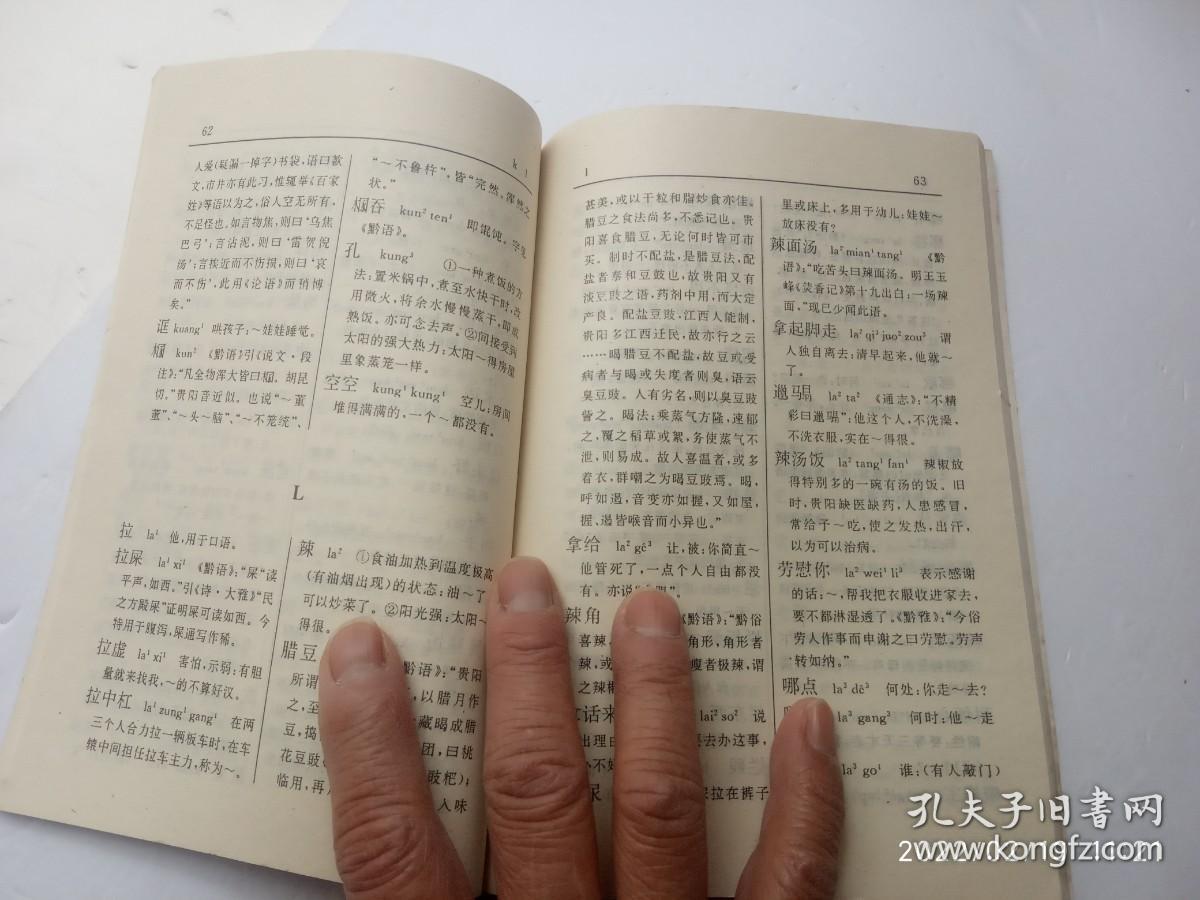 62
k l
人爱(疑漏一掉字)书袋,语曰歃
文,市井亦有此习,惟辄举《百家
姓》等语以为之,俗人空无所有,
不足怪也。如言物焦,则曰‘乌焦
巴弓’;言沾泥,则曰‘雷贺倪
汤’;言挨近而不伤损,则曰‘哀
而不伤’,此用《论语》而稍博
矣。”
诓 kuang¹ 哄孩子:~娃娃睡觉。
kun² 《黔语》引《说文·段
注》:“凡全物浑大皆曰
胡昆
切。”贵阳音近似。也说“~
”、“~头~脑”、“~不笼统”、
“~不鲁杵”,皆“完然,浑然之
状。”
吞 kun² ten¹ 即馄饨。字见
《黔语》。
孔 kung³ ①一种煮饭的方
法:置米锅中,煮至水快干时,改
用微火,将余水慢慢蒸干,即成
熟饭。亦可念去声。②间接受到
太阳的强大热力:太阳~得房屋
里象蒸笼一样。
空空 kung⁴ kung⁴ 空儿:房间
堆得满满的,一个~都没有。
L
拉 la¹ 他,用于口语。
拉屎 la¹ xi¹ 《黔语》:“屎“读
平声,如西。”引《诗·大雅》“民
之方殿屎”证明屎可读如西。今
特用于腹泻,屎通写作稀。
拉虚 la¹ xi¹ 害怕,示弱:有胆
量就来找我,~的不算好汉。
拉中杠 la¹ zung¹ gang¹ 在两
三个人合力拉一辆板车时,在车
辕中间担任拉车主力,称为~。
辣 la² ①食油加热到温度极高
(有油烟出现)的状态:油~了
可以炒菜了。②阳光强:太阳~
得很。
腊豆
《黔语》:“贵阳
所谓
,以腊月作
之,至
藏暍成腊
豆,捣
团,曰桃
花豆豉
豉粑);
临用,再
入味
l
63
甚美,或以干粒和脂炒食亦佳。
腊豆之食法尚多,不悉记也。贵
阳喜食腊豆,无论何时皆可市
买。制时不配盐,是腊豆法,配
盐者奈和豆豉也,故贵阳又有
淡豆豉之语,药剂中用,而大定
产良。配盐豆豉,江西人能制,
贵阳多江西迁民,故亦行之云
……暍腊豆不配盐,故豆或受
病者与暍或失度者则臭,语云
臭豆豉。人有劣名,则以臭豆豉
訾之。暍法:乘蒸气方隆,速郁
之,覆之稻草或絮,务使蒸气不
泄,则易成。故人喜温者,或多
着衣,群嘲之为暍豆豉焉。暍,
呼如遏,音变亦如握,又如屋,
握、遏皆喉音而小异也。”
拿给 la² gê³ 让,被:你简直~
他管死了,一点个人自由都没
有。亦说“
辣角
《黔语》:“黔俗
喜辣,
角形,角形者
辣,或
瘦者极辣,谓
之辣椒
话来
lai² so² 说
出理由
去办这事,
不好
尿
拉在裤子
里或床上,多用于幼儿:娃娃~
放床没有?
辣面汤 la² mian⁴ tang¹ 《黔
语》:“吃苦头曰辣面汤。明王玉
峰《焚香记》第十九出白:一场辣
面。”现已少闻此语。
拿起脚走 la² qi³ juo² zou³ 谓
人独自离去:清早起来,他就~
了。
邋
la² ta² 《通志》:“不精
彩曰邋
”:他这个人,不洗澡,
不洗衣服,实在~得很。
辣汤饭 la² tang¹ fan⁴ 辣椒放
得特别多的一碗有汤的饭。旧
时,贵阳缺医缺药,人患感冒,
常给予~吃,使之发热,出汗,
以为可以治病。
劳慰你 la² wei⁴ li³ 表示感谢
的话:~,帮我把衣服收进家去,
要不都淋湿透了。《黔雅》:“今俗
劳人作事而申谢之曰劳慰。劳声
转如纳。”
哪点 la³ dê³ 何处:你走~去?
la³ gang³ 何时:他~走
la³ go¹ 谁:(有人敲门)
孔夫子旧书网
www.kongfz.com